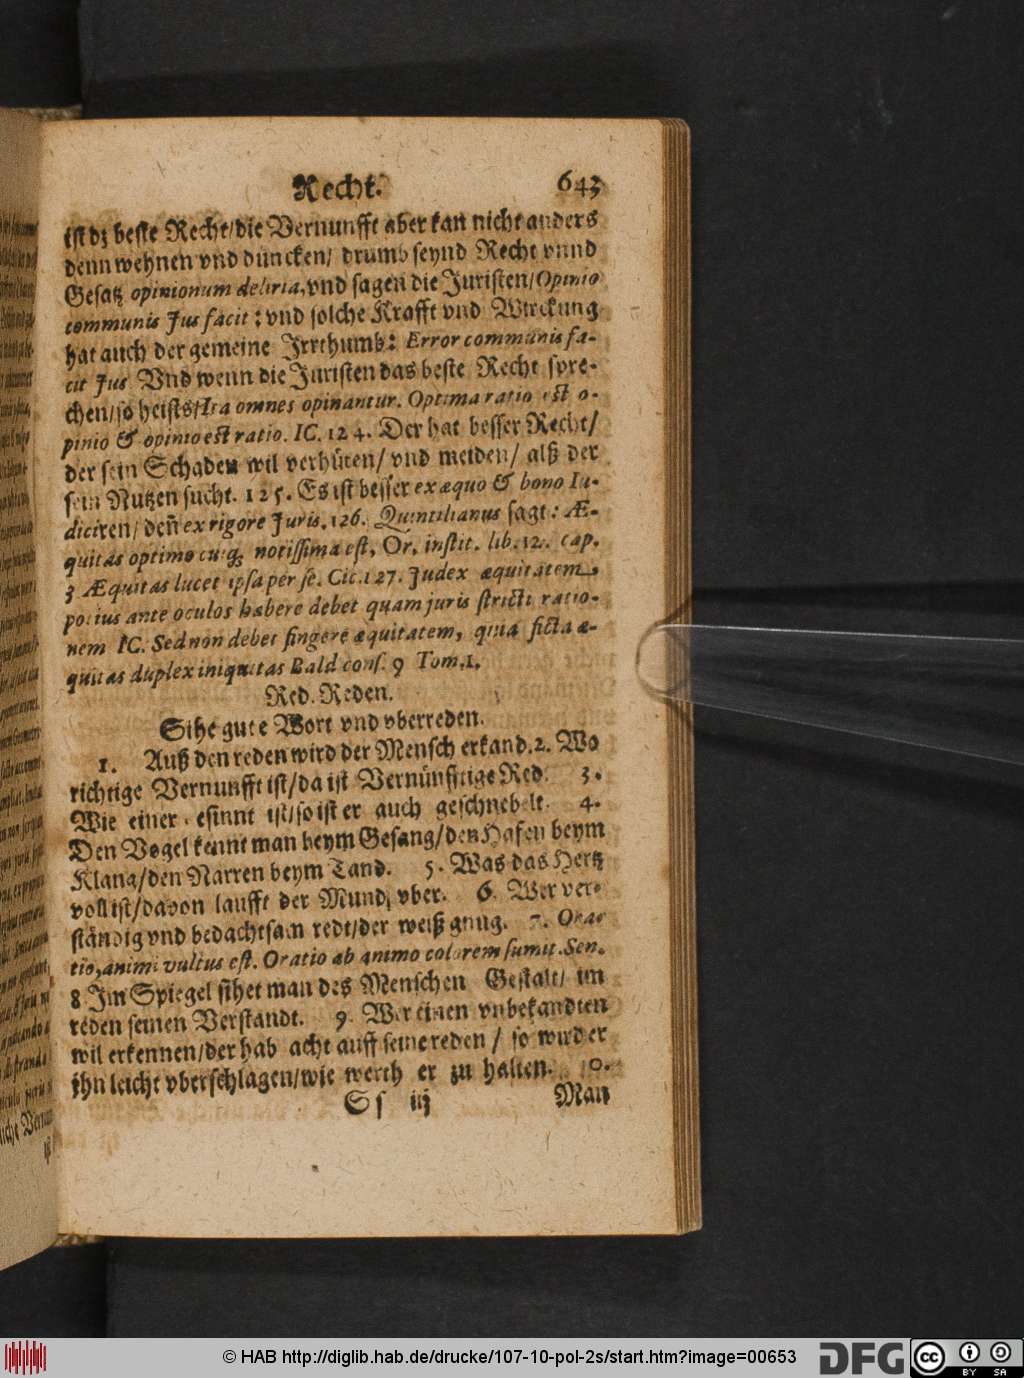 Recht. 643
ist dz beste Recht/die Vernunfft aber kan nicht anders
denn wehnen vnd duncken/ drumb seynd Recht vnnd
Gesatz opinionum deliria, vnd sagen die Juristen/Opinio
communis Jus facit: vnd solche Krafft vnd Wirckung
hat auch der gemeine Irrthumb: Error communis fa-
cit Jus Vnd wenn die Juristen das beste Recht spre-
chen/so heists/Ita omnes opinantur. Optima ratio est o-
pinio & opinio est ratio. IC. 124. Der hat besser Recht/
der sein Schaden wil verhüten/ vnd meiden/ alß der
sein Nutzen sucht. 125. Es ist besser ex æquo & bono Iu-
diciren/ deñ ex rigore Juris. 126. Quintilianus sagt: Æ-
quitas optimo cuiq; notissima est, Or. instit. lib. 12. cap.
3 Æquitas lucet ipsa per se. Cic. 127. Judex æquitatem
potius ante oculos habere debet quam juris stricti ratio-
nem IC. Sed non debet fingere æquitatem, quia ficta æ-
quitas duplex iniquitas Bald cons. 9 Tom.1.
Red. Reden.
Sihe gute Wort vnd vberreden.
1. Auß den reden wird der Mensch erkand. 2. Wo
richtige Vernunfft ist/da ist Vernünfftige Red. 3.
Wie einer gesinnt ist/so ist er auch geschnebelt. 4.
Den Vogel kennt man beym Gesang/den Hafen beym
Klang/den Narren beym Tand. 5. Was das Hertz
voll ist/davon laufft der Mund vber. 6. Wer ver-
ständig vnd bedachtsam redt/der weiß gnug. 7. Ora-
tio, animi vultus est. Oratio ab animo colorem sumit. Sen.
8 Im Spiegel sihet man des Menschen Gestalt/ im
reden seinen Verstandt. 9. Wer einen vnbekandten
wil erkennen/der hab acht auff seine reden / so wird er
ihn leicht vberschlagen/wie werth er zu halten. 10.
Ss iij Man
© HAB http://diglib.hab.de/drucke/107-10-pol-2s/start.htm?image=00653
DFG
cc BY SA